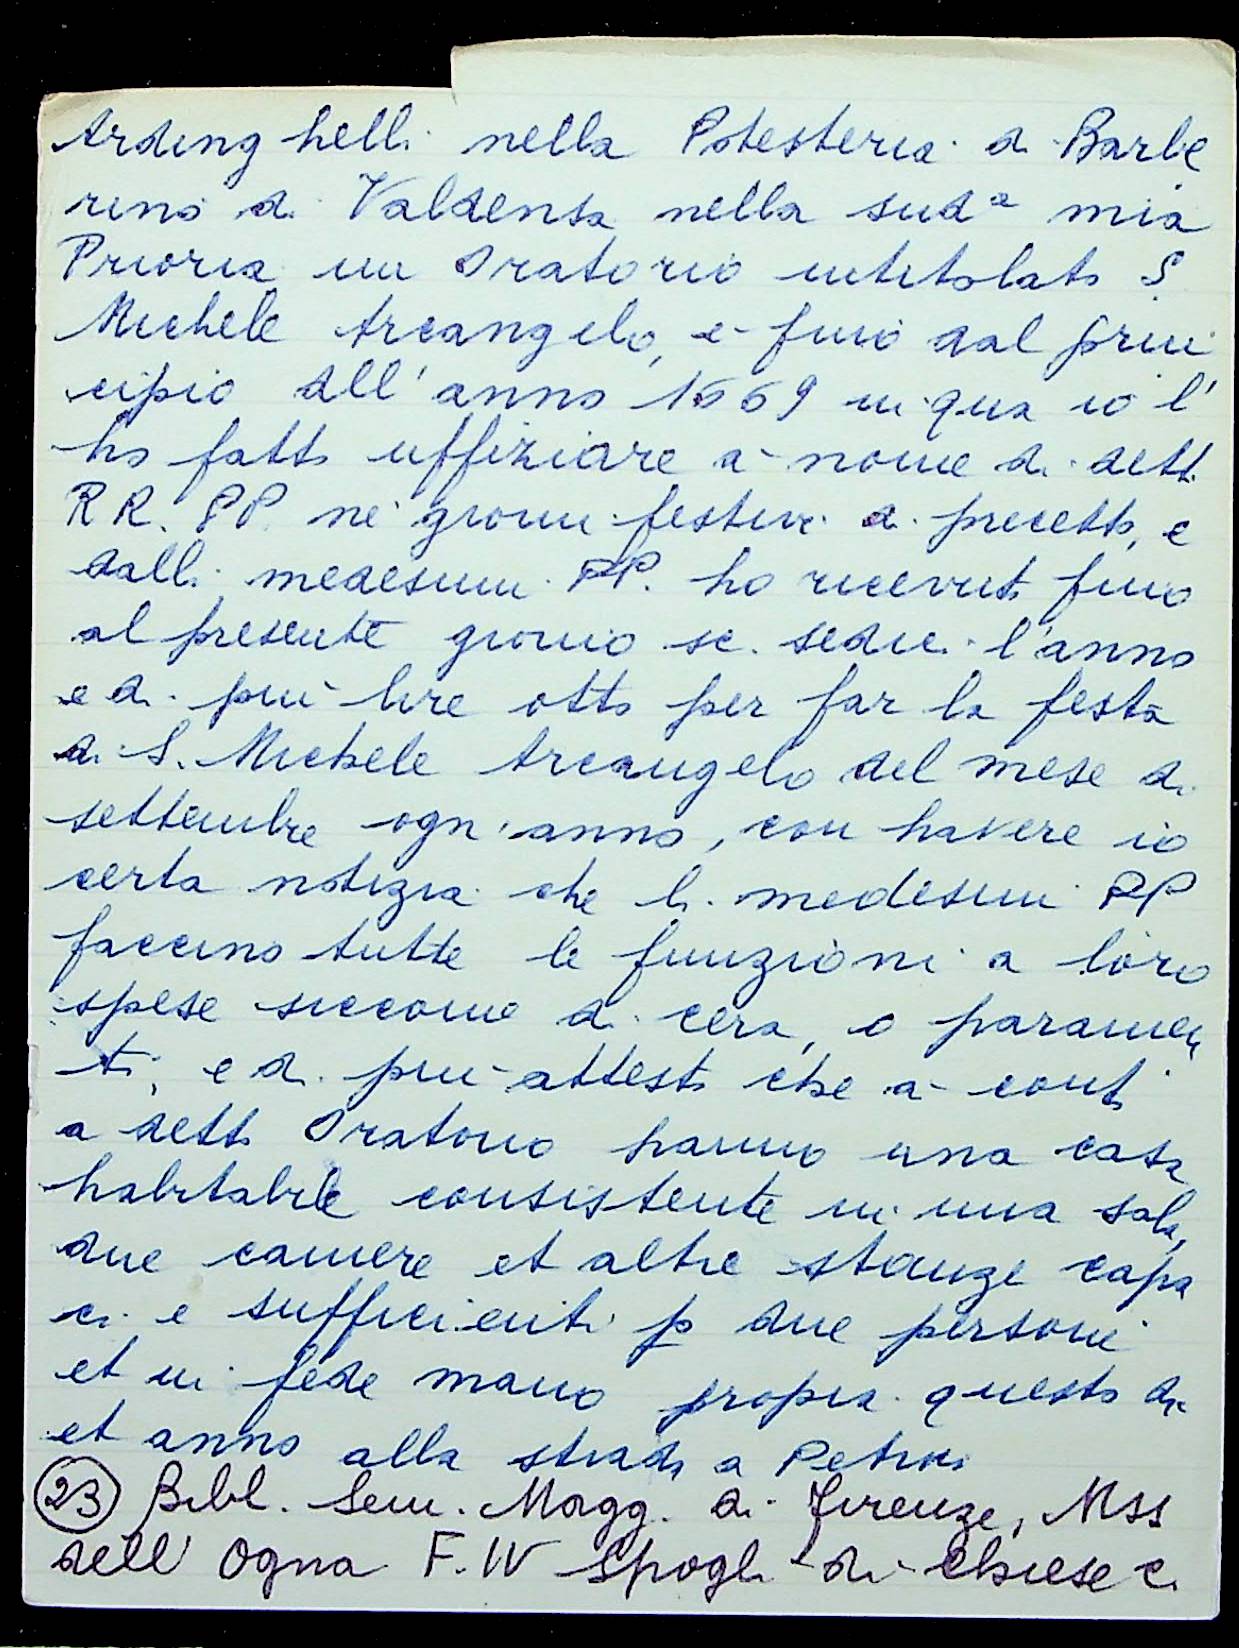 Ardinghelli nella Potesteria di Barbe
rino di Valdensa nella sudª mia
Prioria un Oratorio intitolato S.
Michele Arcangelo, e fino dal prin
cipio dell'anno 1669 in qua io l'
ho fatto uffiziare a nome di detti
RR. PP. ne' giorni festivi di precetto, e
dalli medesimi PP. ho ricevuto fino
al presente giorno sc. sedici l'anno
e di più lire otto per far la festa
di S. Michele Arcangelo del mese di
settembre ogn'anno, con havere io
certa notizia che li medesimi PP
faccino tutte le funzioni a loro
spese siccome di cera, o paramen
ti, e di più attesto che a conto
a detto Oratorio hanno una casa
habitabile consistente in una sala,
due camere et altre stanze capa
ci e sufficienti p due persone
et in fede mano propria questo dì
et anno alla strada a Petroi
(23) Bibl. Sem. Magg. di Firenze, Mss
dell'Ogna F. IV Spogli di Chiese e